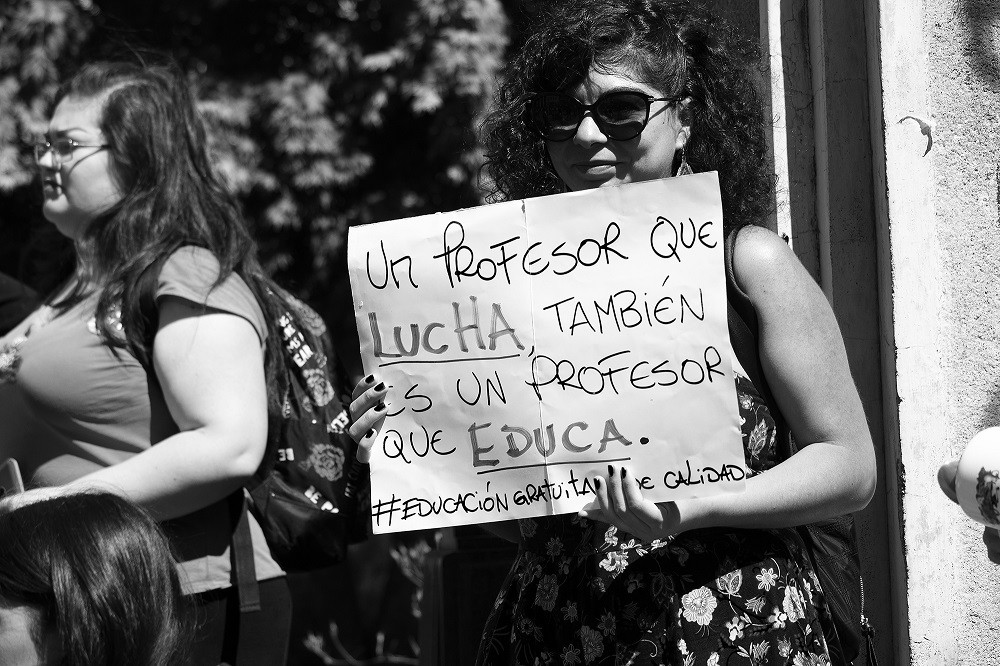 Un PROFESOR QUE
LUCHA, TAMBIÉN
ES UN PROFESOR
QUE EDUCA.
#EDUCACIÓN GRATUITA DE CALIDAD